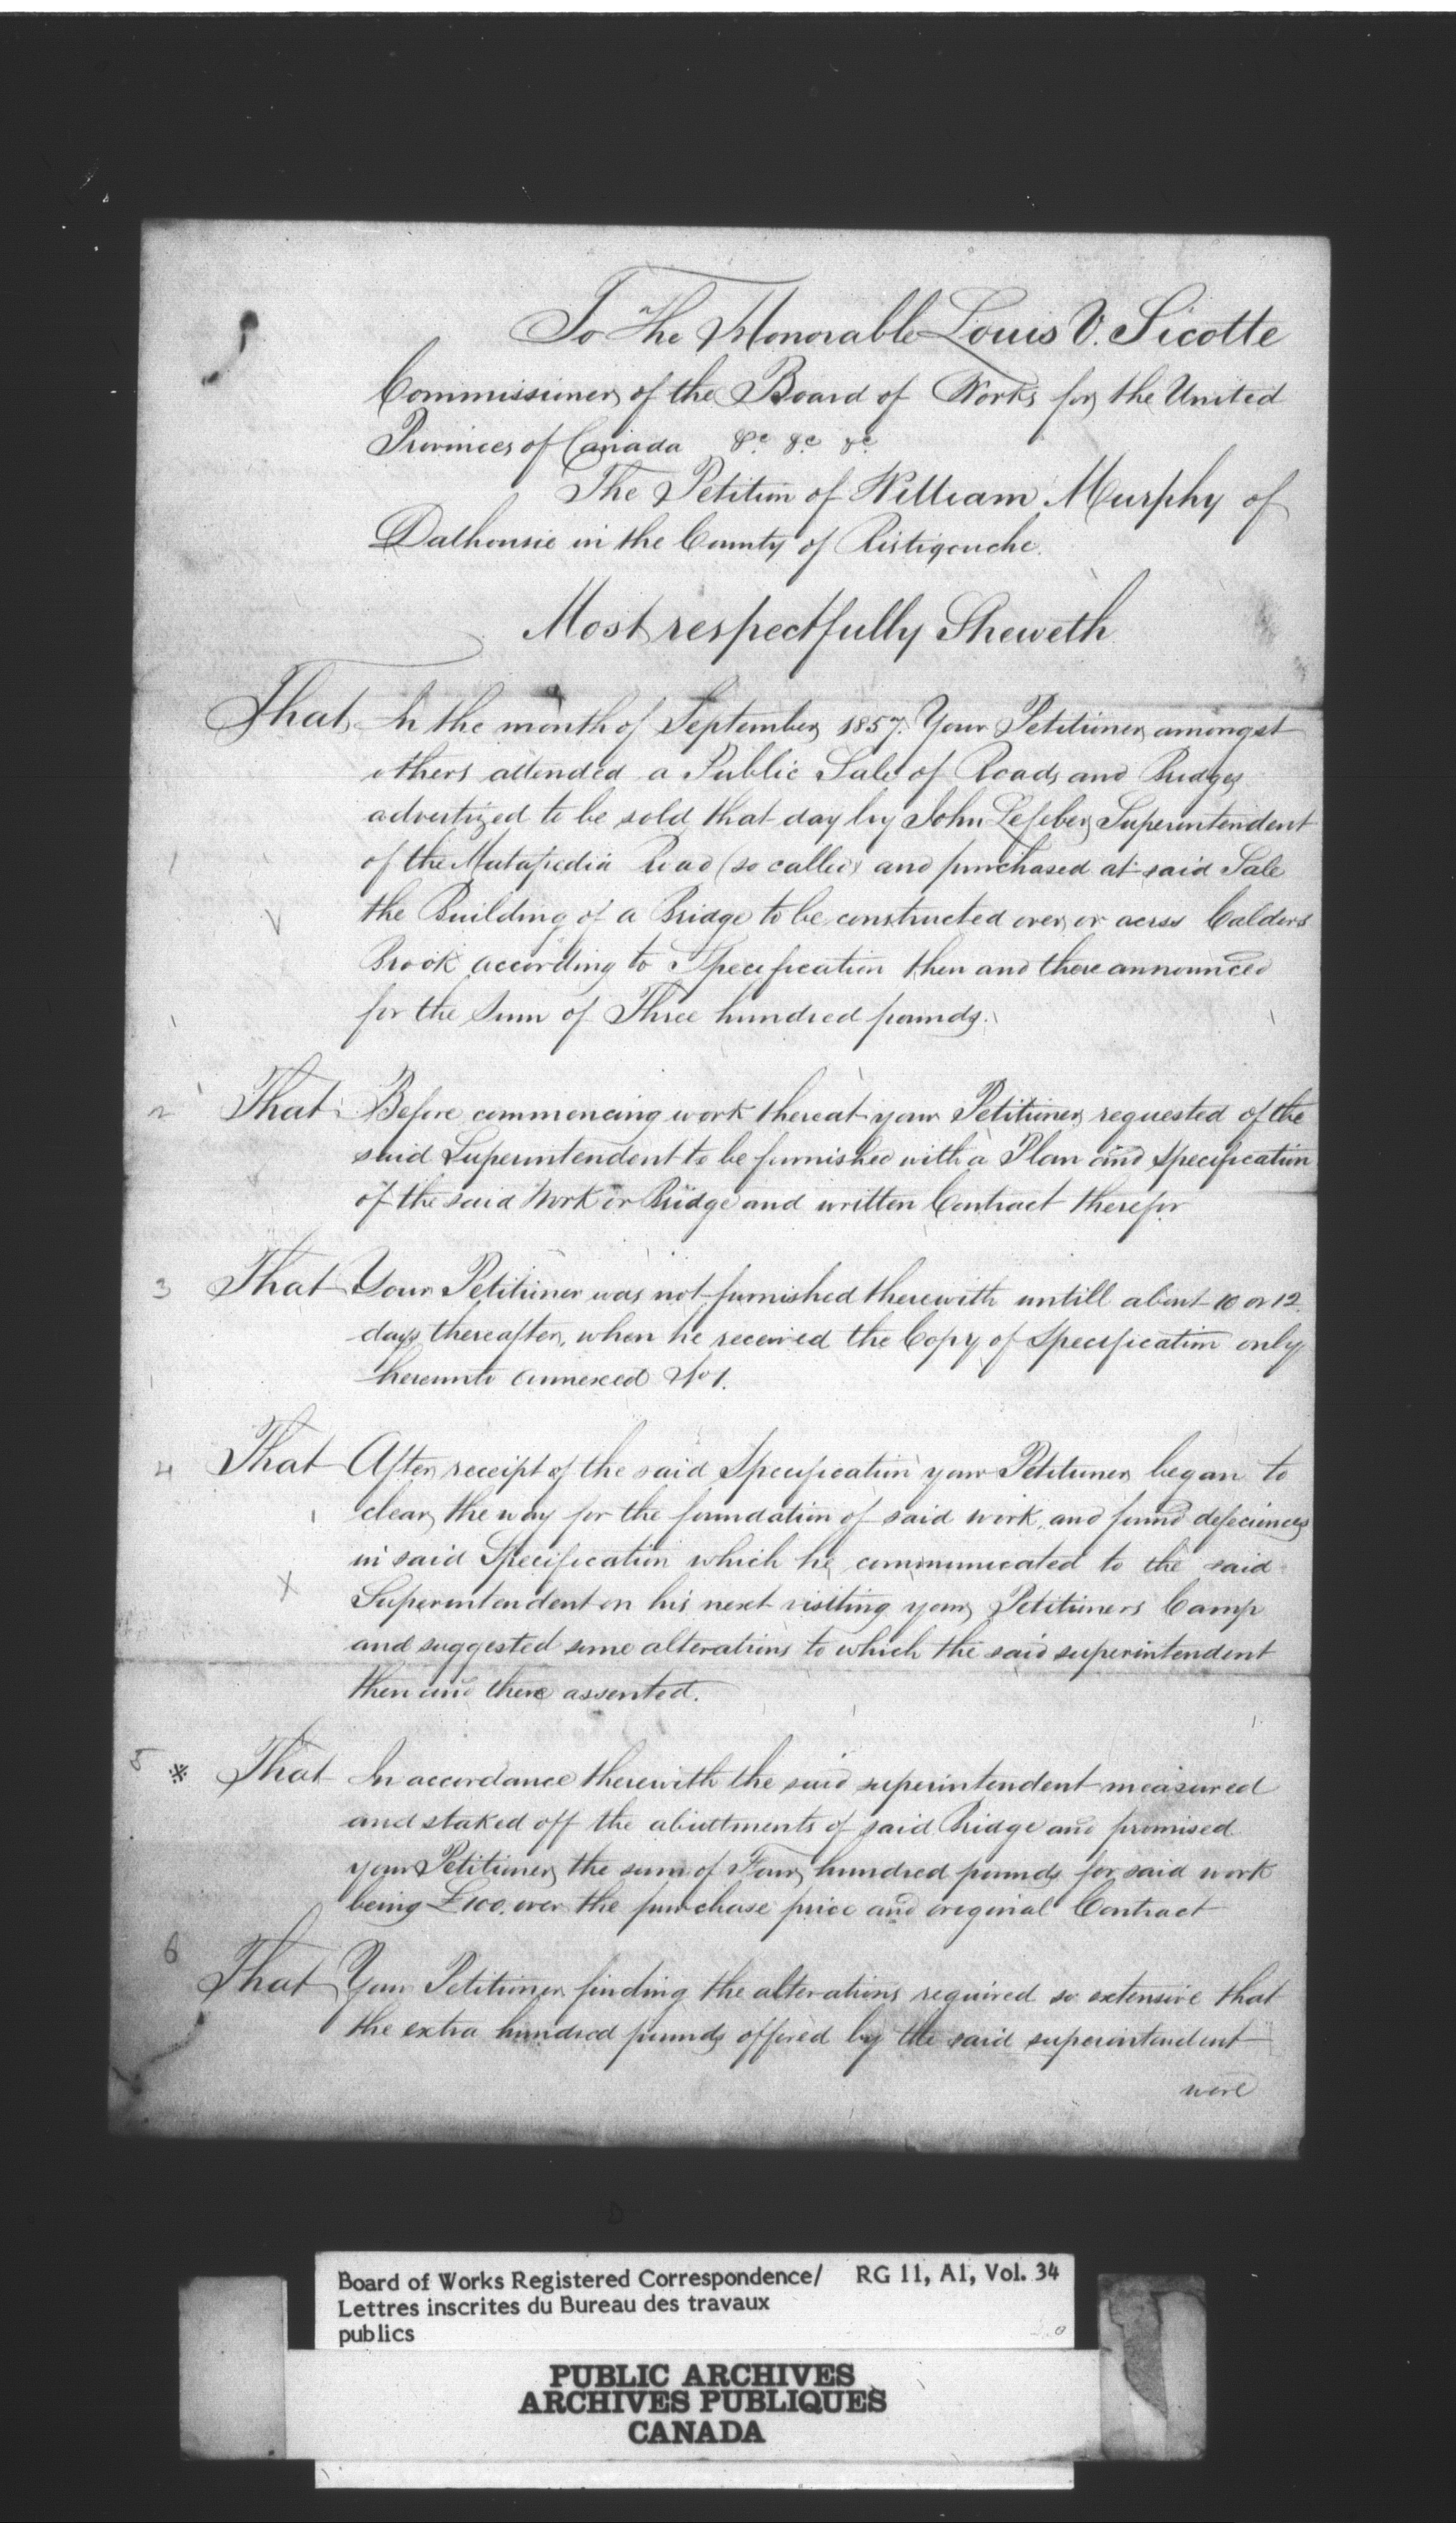 To The Honorable Louis V. Sicotte
Commissioner of the Board of Works for the United
Provinces of Canada &c &c &c
The Petition of William Murphy of
Dalhousie in the County of Ristigouche.
Most respectfully Sheweth
That In the month of September 1857. Your Petitioner amongst
others attended a Public Sale of Roads and Bridges
advertized to be sold that day by John Lefeber Superintendent
of the Matapedia Road (so called) and purchased at said Sale
the Building of a Bridge to be constructed over or across Calders
Brook according to Specification then and there announced
for the Sum of Three hundred pounds.
2 That Before commencing work thereat your Petitioner requested of the
said Superintendent to be furnished with a Plan and Specification
of the said Work or Bridge and written Contract therefor
3 That Your Petitioner was not furnished therewith untill about 10 or 12
days thereafter, when he received the Copy of Specification only
hereunto annexed No 1.
4 That After receipt of the said Specification your Petitioner began to
clear the way for the foundation of said work, and found deficiences
in said Specification which he communicated to the said
X Superintendent on his next visiting your Petitioners Camp
and suggested some alterations to which the said superintendent
then and there assented.
5 ※ That In accordance therewith the said superintendent measured
and staked off the abuttments of said Bridge and promised
your Petitioner the sum of Four hundred pounds for said work
being £100. over the purchase price and original Contract
6 That Your Petitioner finding the alterations required so extensive that
the extra hundred pounds offered by the said superintendent
were
Board of Works Registered Correspondence/ RG 11, A1, Vol. 34
Lettres inscrites du Bureau des travaux
publics
PUBLIC ARCHIVES
ARCHIVES PUBLIQUES
CANADA